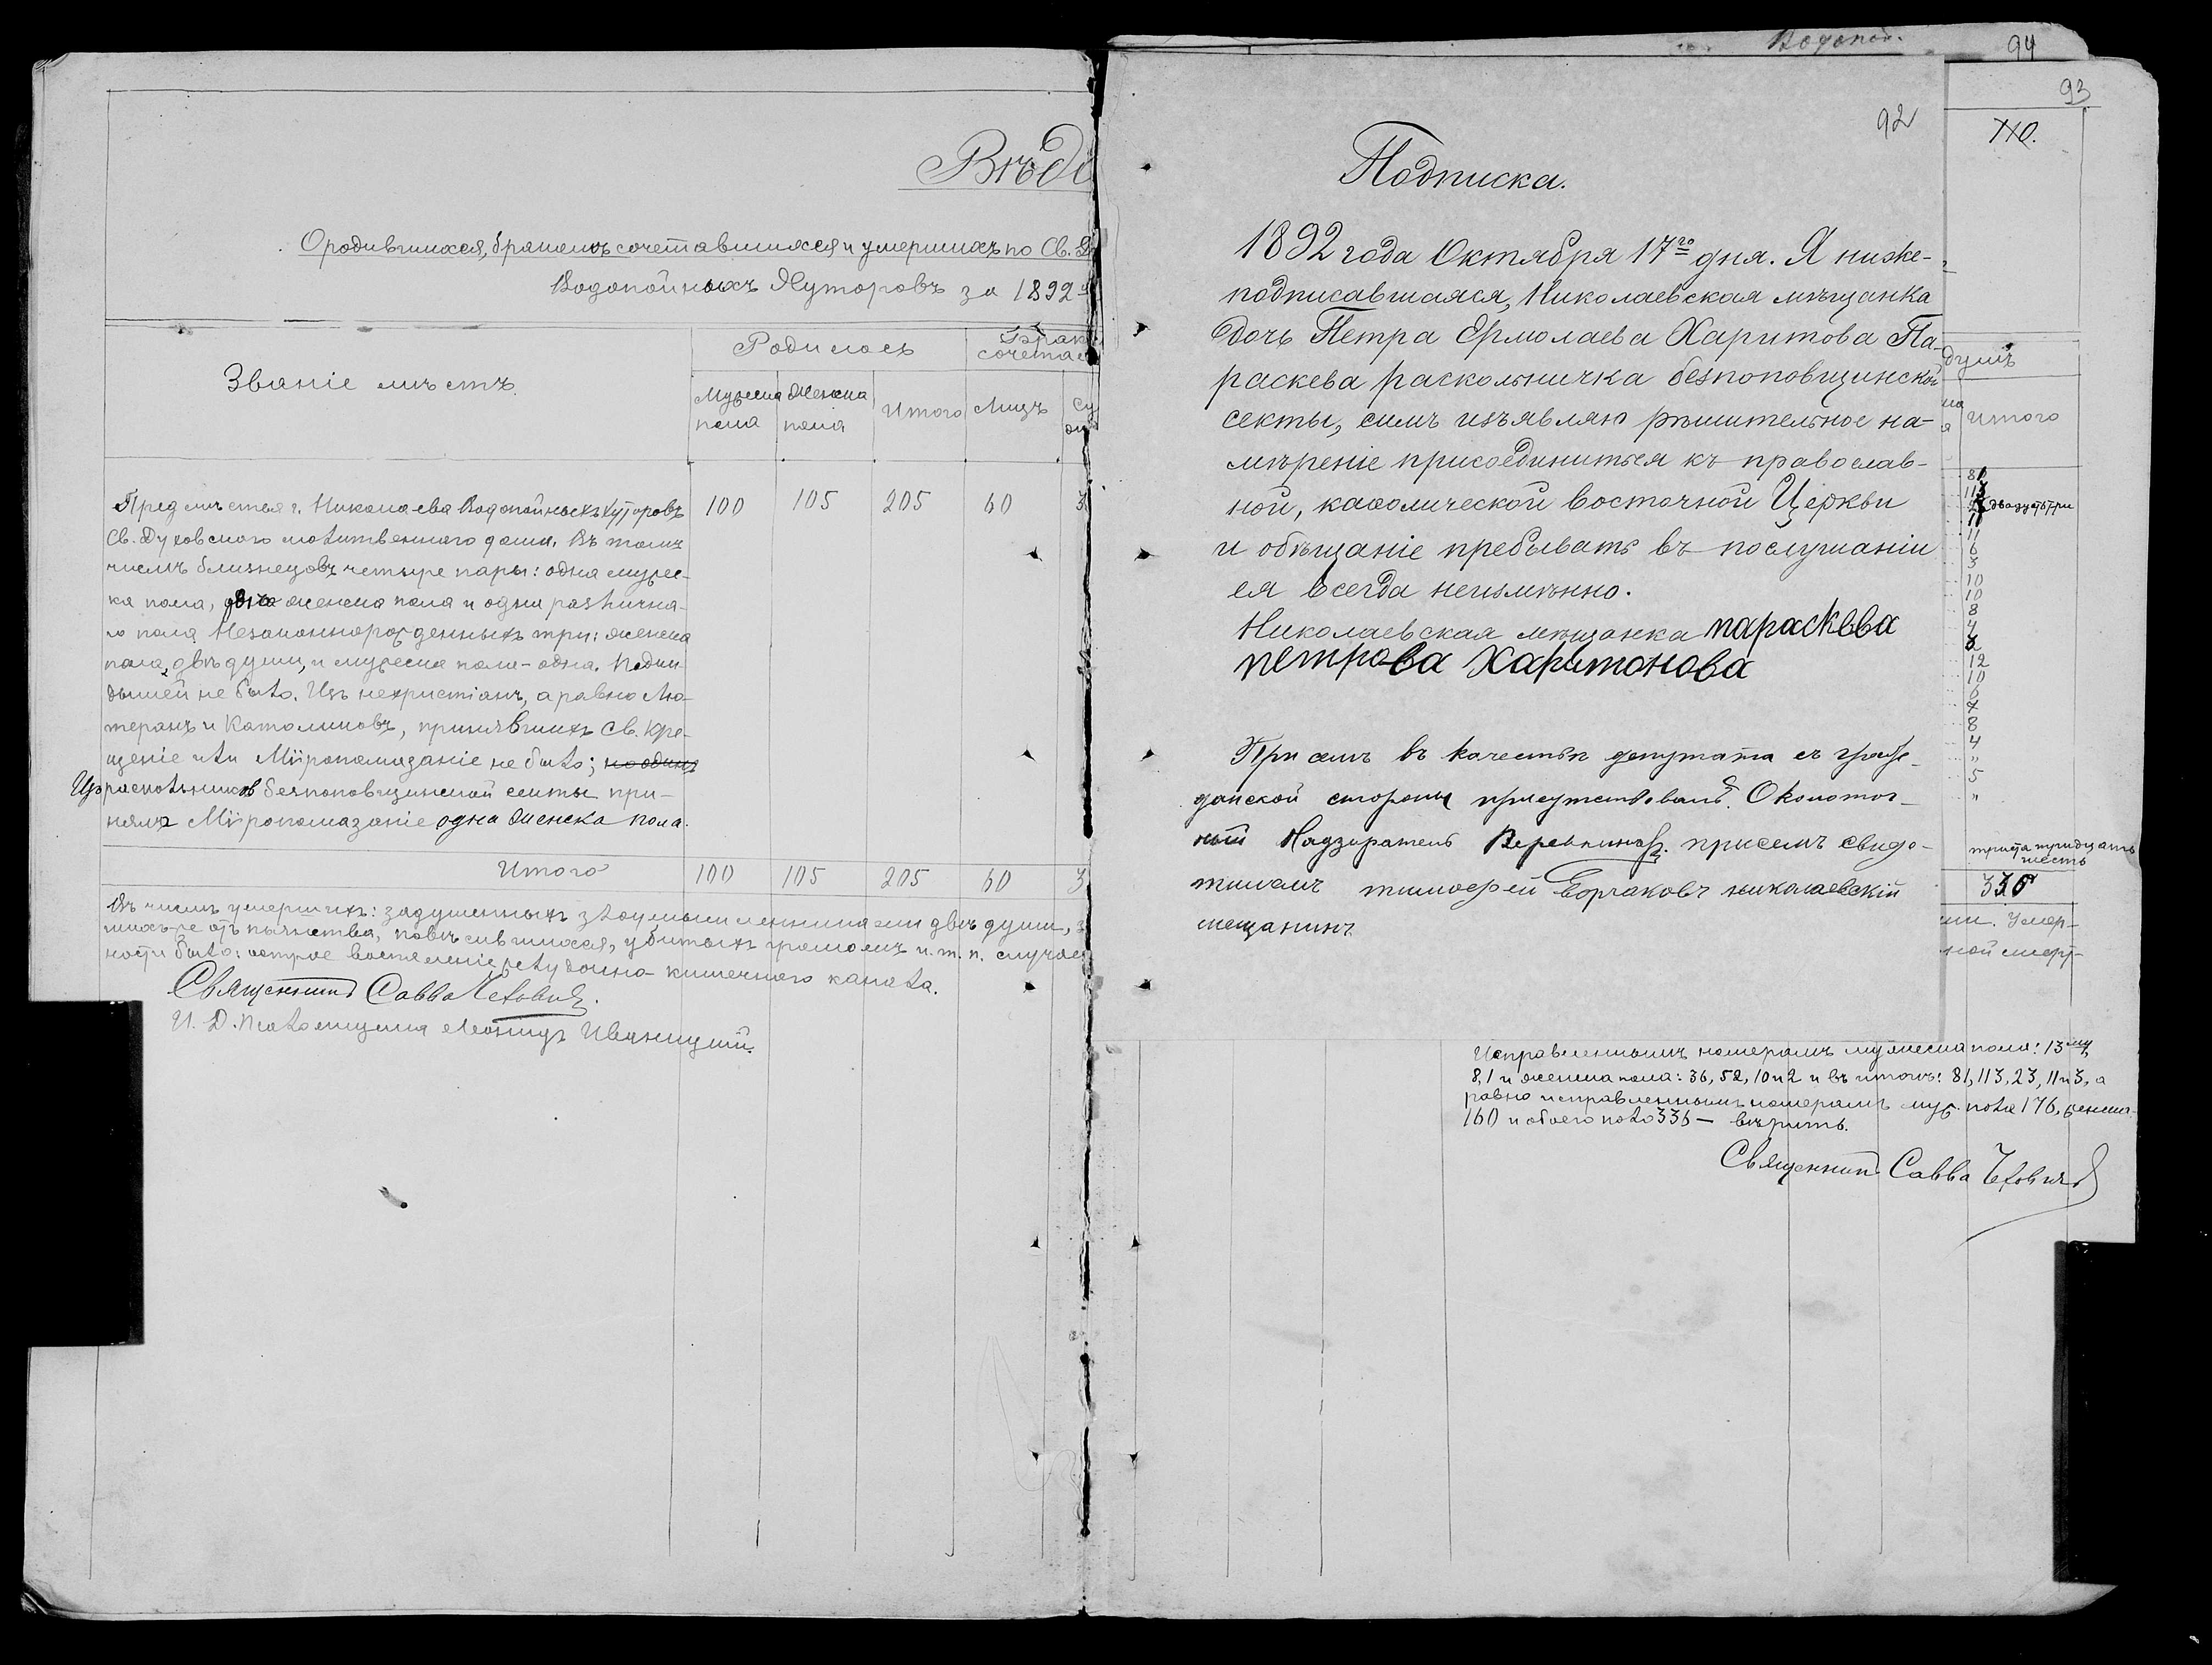 Вѣдо
О родившихся, бракомъ сочетавшихся и умершихъ по Св. Д
Водопойныхъ Хуторовъ за 1892
Званіе мѣстъ.
Родилось
Брак
сочетал
Мужеска пола
Женска пола
Итого
Лицъ
Предмѣстья г. Николаева Водопойныхъ хуторовъ
100 105 205 60 3
Св. Духовскаго молитвеннаго дома. Въ томъ
числѣ близнецовъ четыре пары: одна мужес-
ка пола, двѣ женска пола и одна различна-
го пола. Незаконнорожденныхъ три: женска
пола, двѣ души, и мужеска пола - одна. Подки-
дышей не было. Изъ нехристіанъ, а равно Лю-
теранъ и Католиковъ, принявшихъ Св. Кре-
щеніе или Мѵропомазаніе не было; ни одинъ
Изъ раскольниковъ безпоповщинской секты при-
няла Мѵропомазаніе одна женска пола.
Итого 100 105 205 60 3
Въ числѣ умершихъ: задушенныхъ злоумышленниками двѣ души,
шихъ-же отъ пьянства, повѣсившихся, убитыхъ громомъ и. т. п. случаев
ности было: острое воспаленіе желудочно-кишечнаго канала.
Священникъ Савва Чехович.
И. Д. Псаломщика Леонидъ Иваницкій.
Водопой.
94
93
92
Подписка.
1892 года Октября 17го дня. Я ниже-
подписавшаяся, Николаевская мѣщанка
дочь Петра Ермолаева Харитова Па-
раскева раскольничка безпоповщинской
секты, симъ изъявляю рѣшительное на-
мѣреніе присоединиться къ православ-
ной, каѳолической восточной Церкви
и обѣщаніе пребывать въ послушаніи
ея всегда неизмѣнно.
Николаевская мѣщанка параскѣва
петрова Харитонова
При семъ въ качествѣ депутата съ граж-
данской стороны присутствовалъ Околоточ-
ный Надзиратель Веревкинъ. присемъ свидѣ-
тилемъ тимофей Горчаковъ николаевскій
мещанинъ
душъ
итого
81
113
23 двадцать три
11
11
6
3
10
10
8
4
2
12
10
6
8
4
"
5
"
триста тридцать
шесть
336
ии. Умер-
ной смерт-
Исправленнымъ номерамъ мужеска пола: 13му,
8, 1 и женска пола: 36, 52, 10 и 2 и въ итогѣ: 81, 113, 23, 11 и 3, а
равно исправленнымъ номерамъ муж. пола 176, женска-
160 и обоего пола 336 — вѣрить.
Священник Савва Чехович